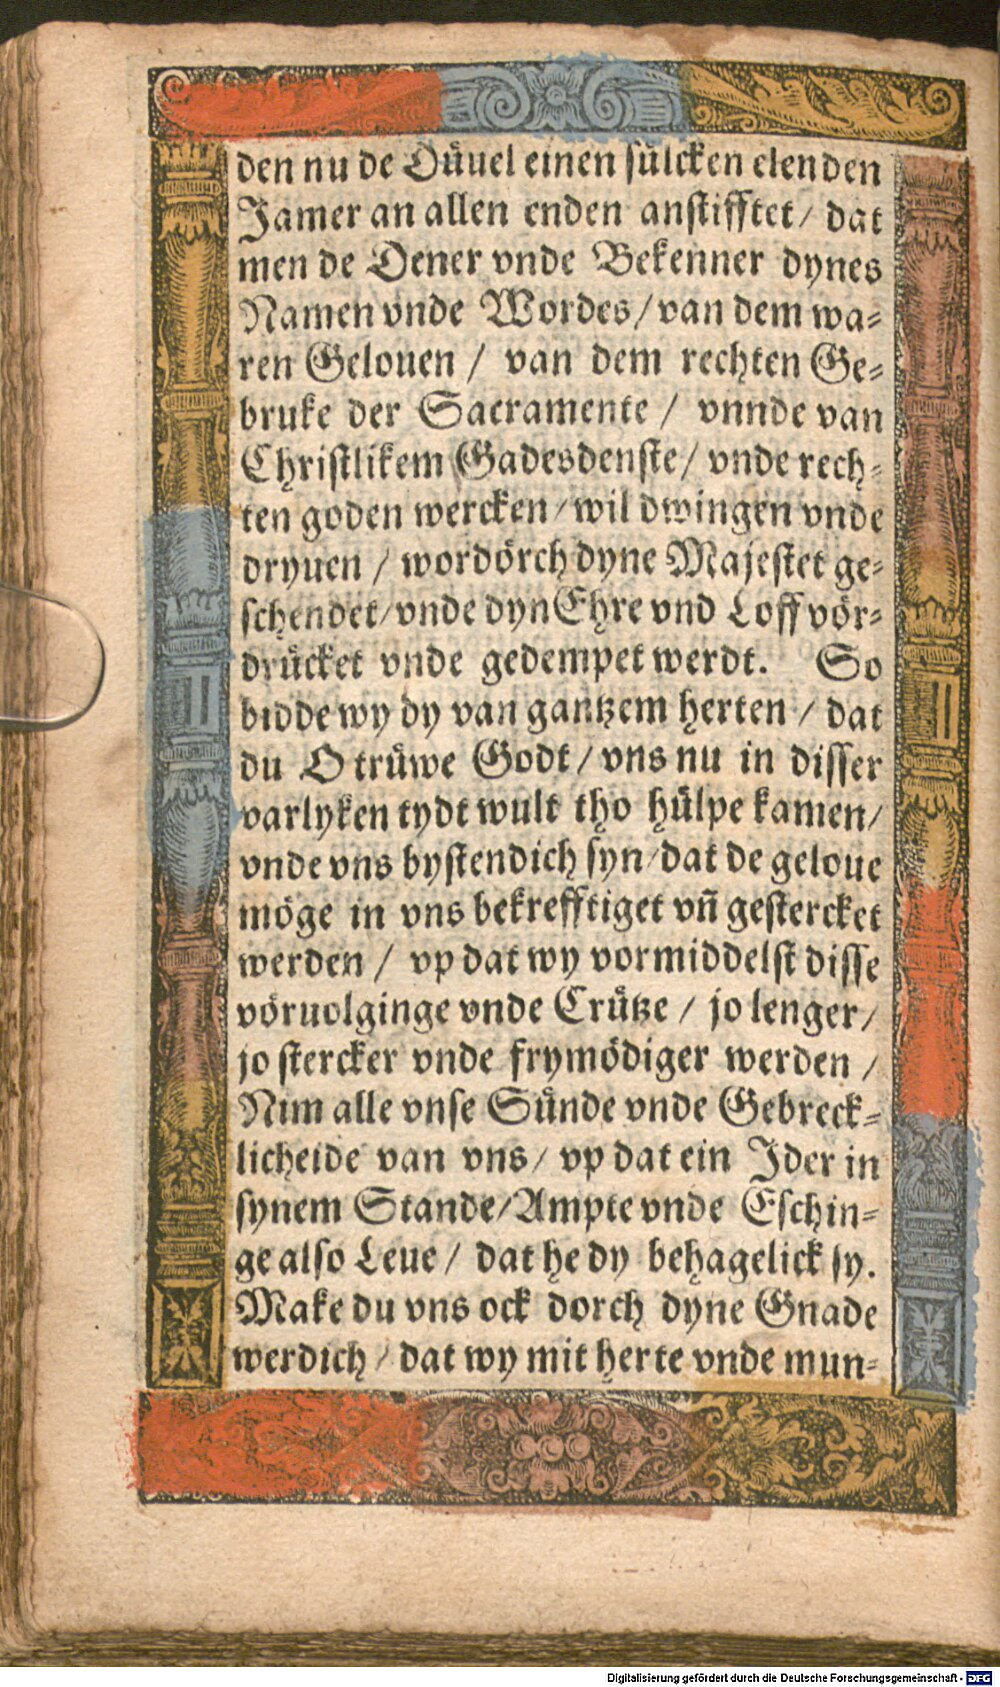 den nu de Düuel einen sülcken elenden
Jamer an allen enden anstifftet / dat
men de Dener vnde Bekenner dynes
Namen vnde Wordes / van dem wa=
ren Gelouen / van dem rechten Ge=
bruke der Sacramente / vnnde van
Christlikem Gadesdenste / vnde rech=
ten goden wercken / wil dwingen vnde
dryuen / wordörch dyne Majestet ge=
schendet / vnde dyn Ehre vnd Loff vör=
drücket vnde gedempet werdt. So
bidde wy dy van gantzem herten / dat
du O trüwe Godt / vns nu in disser
varlyken tydt wult tho hülpe kamen /
vnde vns bystendich syn / dat de geloue
möge in vns bekrefftiget vñ gestercket
werden / vp dat wy vormiddelst disse
vöruolginge vnde Crütze / jo lenger /
jo stercker vnde frymödiger werden /
Nim alle vnse Sünde vnde Gebreck=
licheide van vns / vp dat ein Jder in
synem Stande / Ampte vnde Eschin=
ge also Leue / dat he dy behagelick sy.
Make du vns ock dorch dyne Gnade
werdich / dat wy mit herte vnde mun=
Digitalisierung gefördert durch die Deutsche Forschungsgemeinschaft - DFG